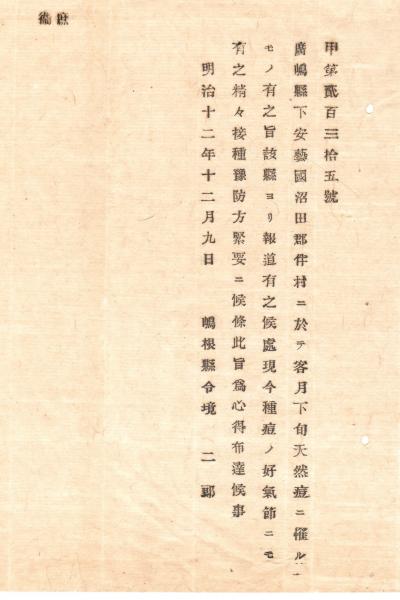 甲第貳百三拾五號
廣嶋縣下安藝國沼田郡伴村ニ於テ客月下旬天然痘ニ罹ル
モノ有之旨該縣ヨリ報道有之候處現今種痘ノ好氣節ニモ
有之精々接種豫防方緊要ニ候條此旨爲心得布達候事
明治十二年十二月九日 嶋根縣令境 二郎
庶衞